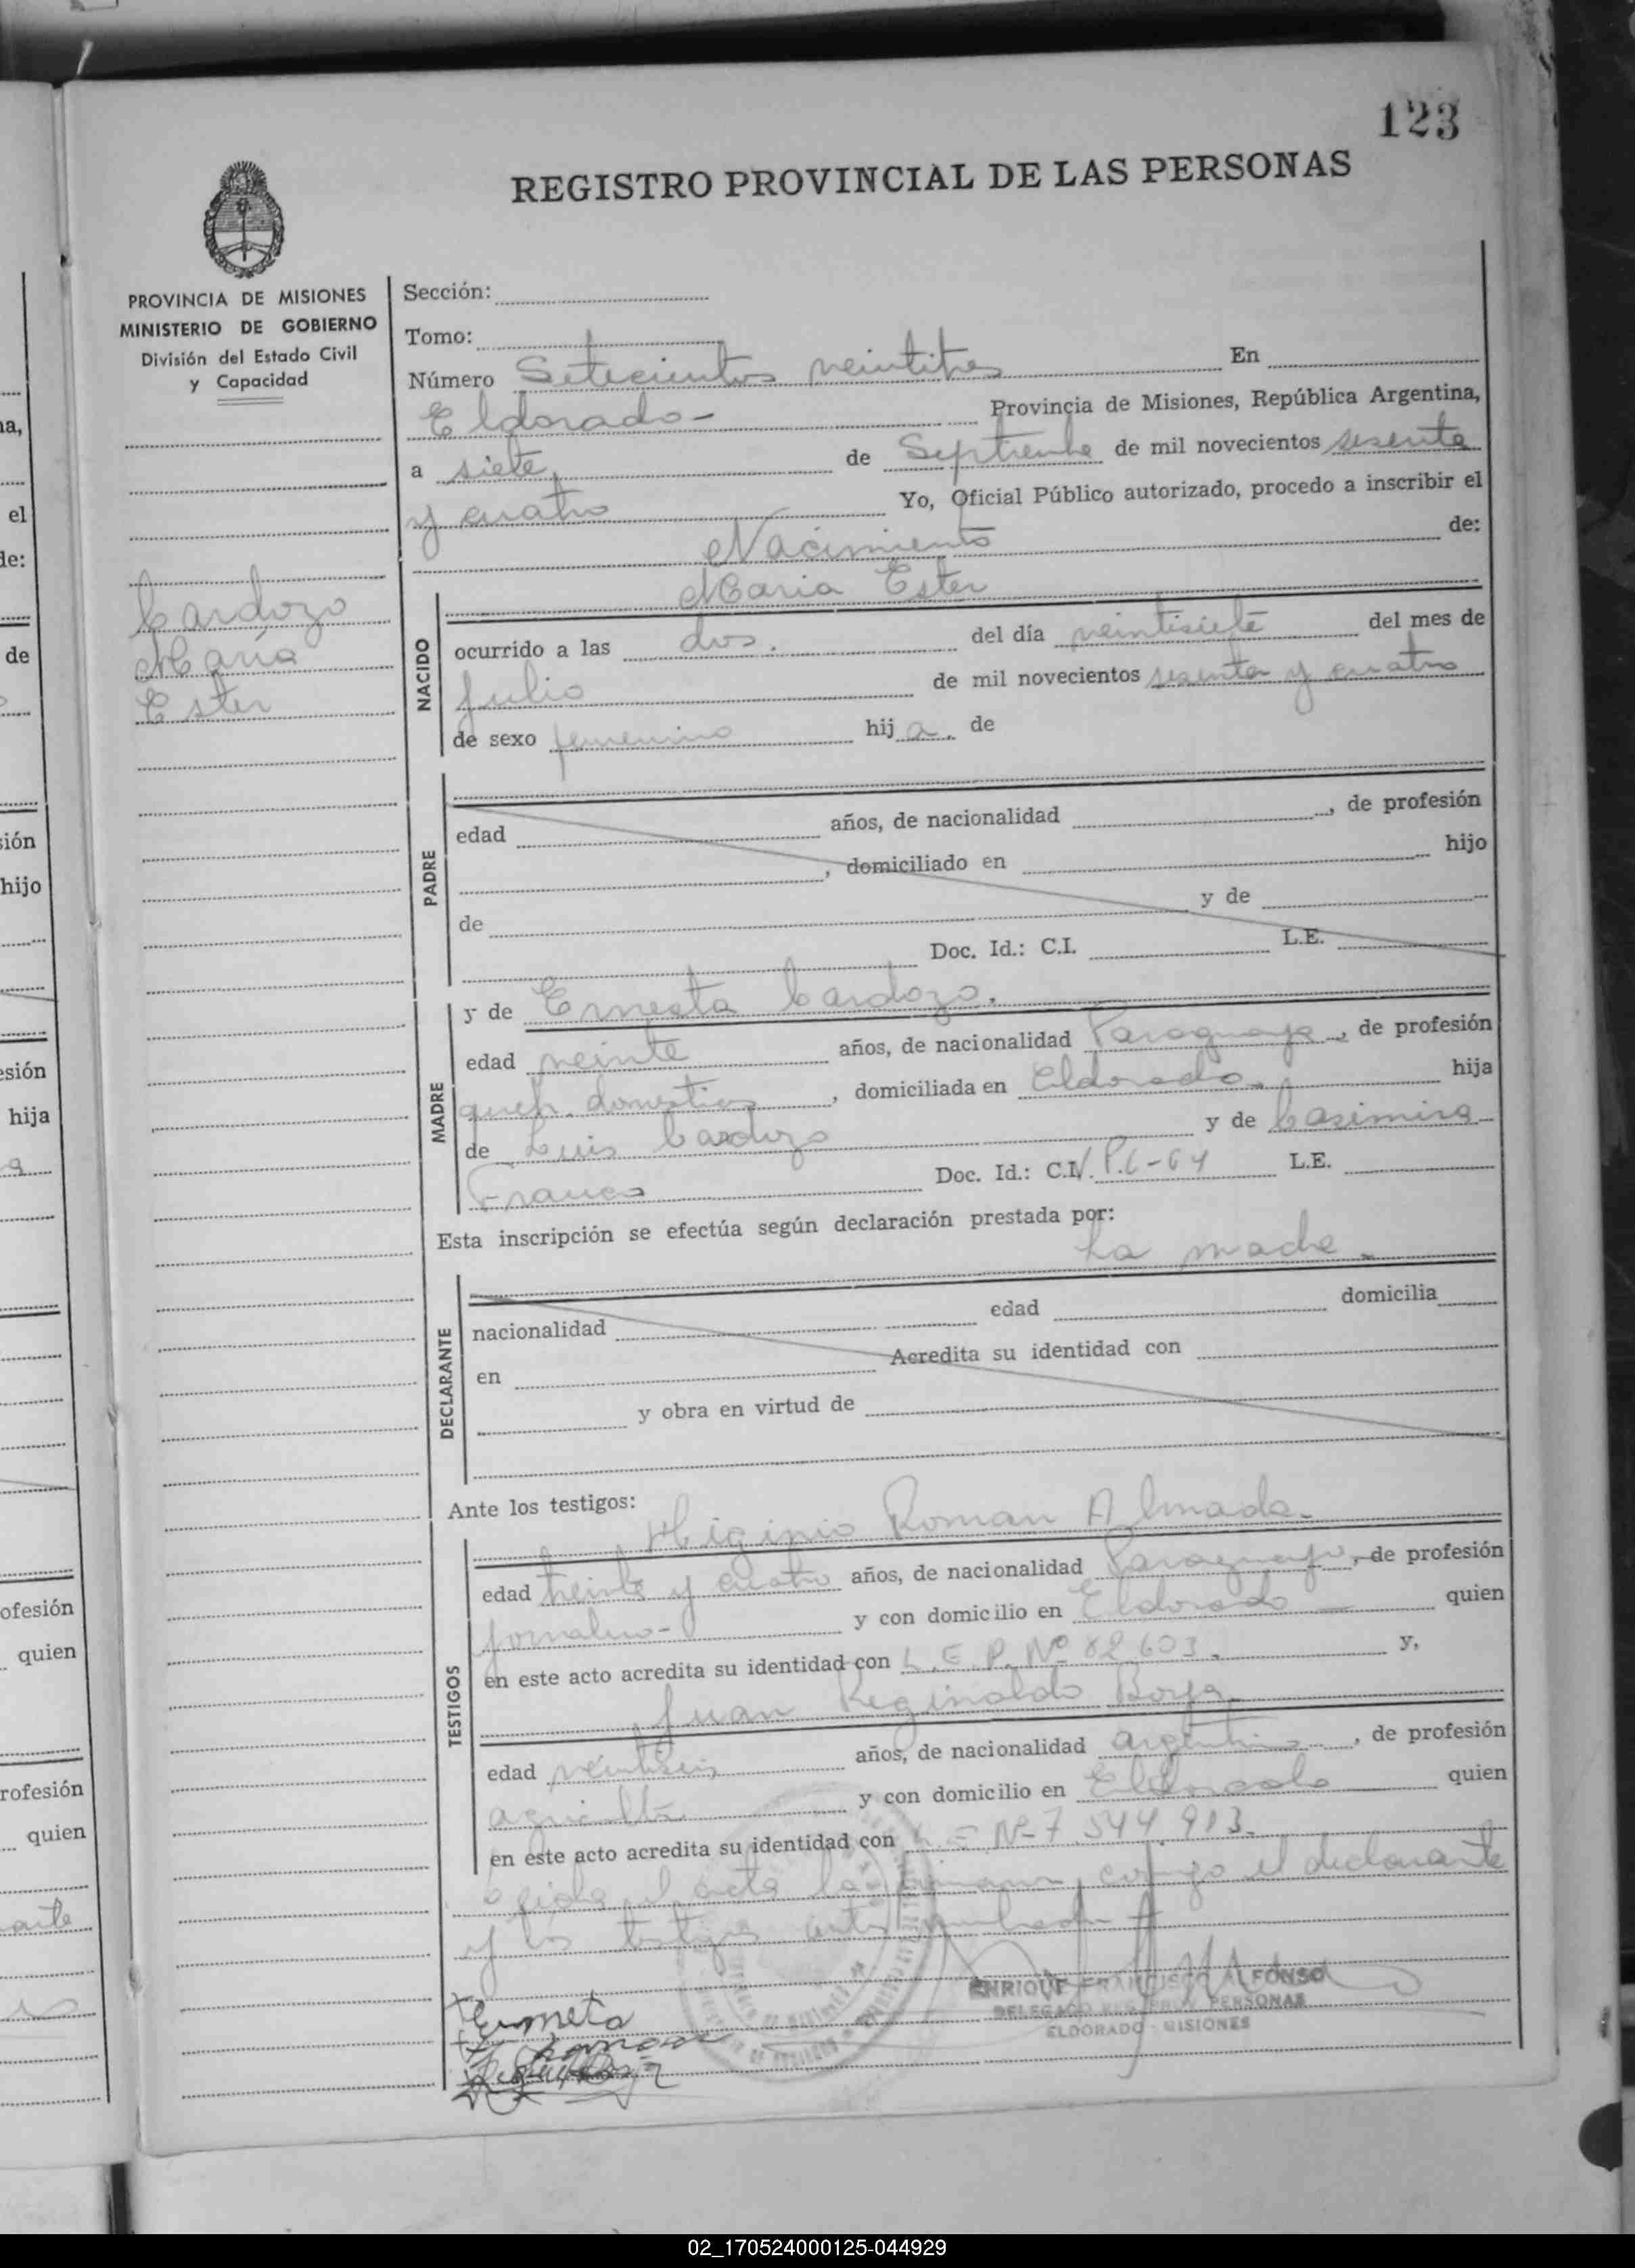 123
REGISTRO PROVINCIAL DE LAS PERSONAS
PROVINCIA DE MISIONES
MINISTERIO DE GOBIERNO
División del Estado Civil
y Capacidad
Cardozo
María
Ester
Sección:
Tomo:
Número Setecientos veintitres En
Eldorado - Provincia de Misiones, República Argentina,
a siete de Septiembre de mil novecientos sesenta
y cuatro Yo, Oficial Público autorizado, procedo a inscribir el
Nacimiento de:
NACIDO
Maria Ester
ocurrido a las dos. del día veintisiete del mes de
Julio de mil novecientos sesenta y cuatro
de sexo femenino hija. de
PADRE
edad años, de nacionalidad , de profesión
, domiciliado en hijo
de y de
Doc. Id.: C.I. L.E.
MADRE
y de Ernesta Cardozo.
edad veinte años, de nacionalidad Paraguaya, de profesión
queh. domesticos, domiciliada en Eldorado. hija
de Luis Cardozo y de Casimira
Franco Doc. Id.: C.I. L.E.
Esta inscripción se efectúa según declaración prestada por:
La madre.
DECLARANTE
nacionalidad edad domicilia
en Acredita su identidad con
y obra en virtud de
Ante los testigos:
TESTIGOS
Higinio Roman Almada.
edad treinta y cuatro años, de nacionalidad Paraguayo, de profesión
Jornalero - y con domicilio en Eldorado quien
en este acto acredita su identidad con Nº 82.603. y,
Juan Reginaldo Borja
edad veintiseis años, de nacionalidad argentino, de profesión
agricultor y con domicilio en Eldorado quien
en este acto acredita su identidad con L E Nº 7.544.913.
el acta la el declarante
y los testigos
Ernneta
ENRIQUE FRANCISCO ALFONSO
DELEGADO REG. PROV. PERSONAS
ELDORADO - MISIONES
a,
el
de:
de
sión
hijo
esión
hija
ofesión
quien
rofesión
quien
02_170524000125-044929